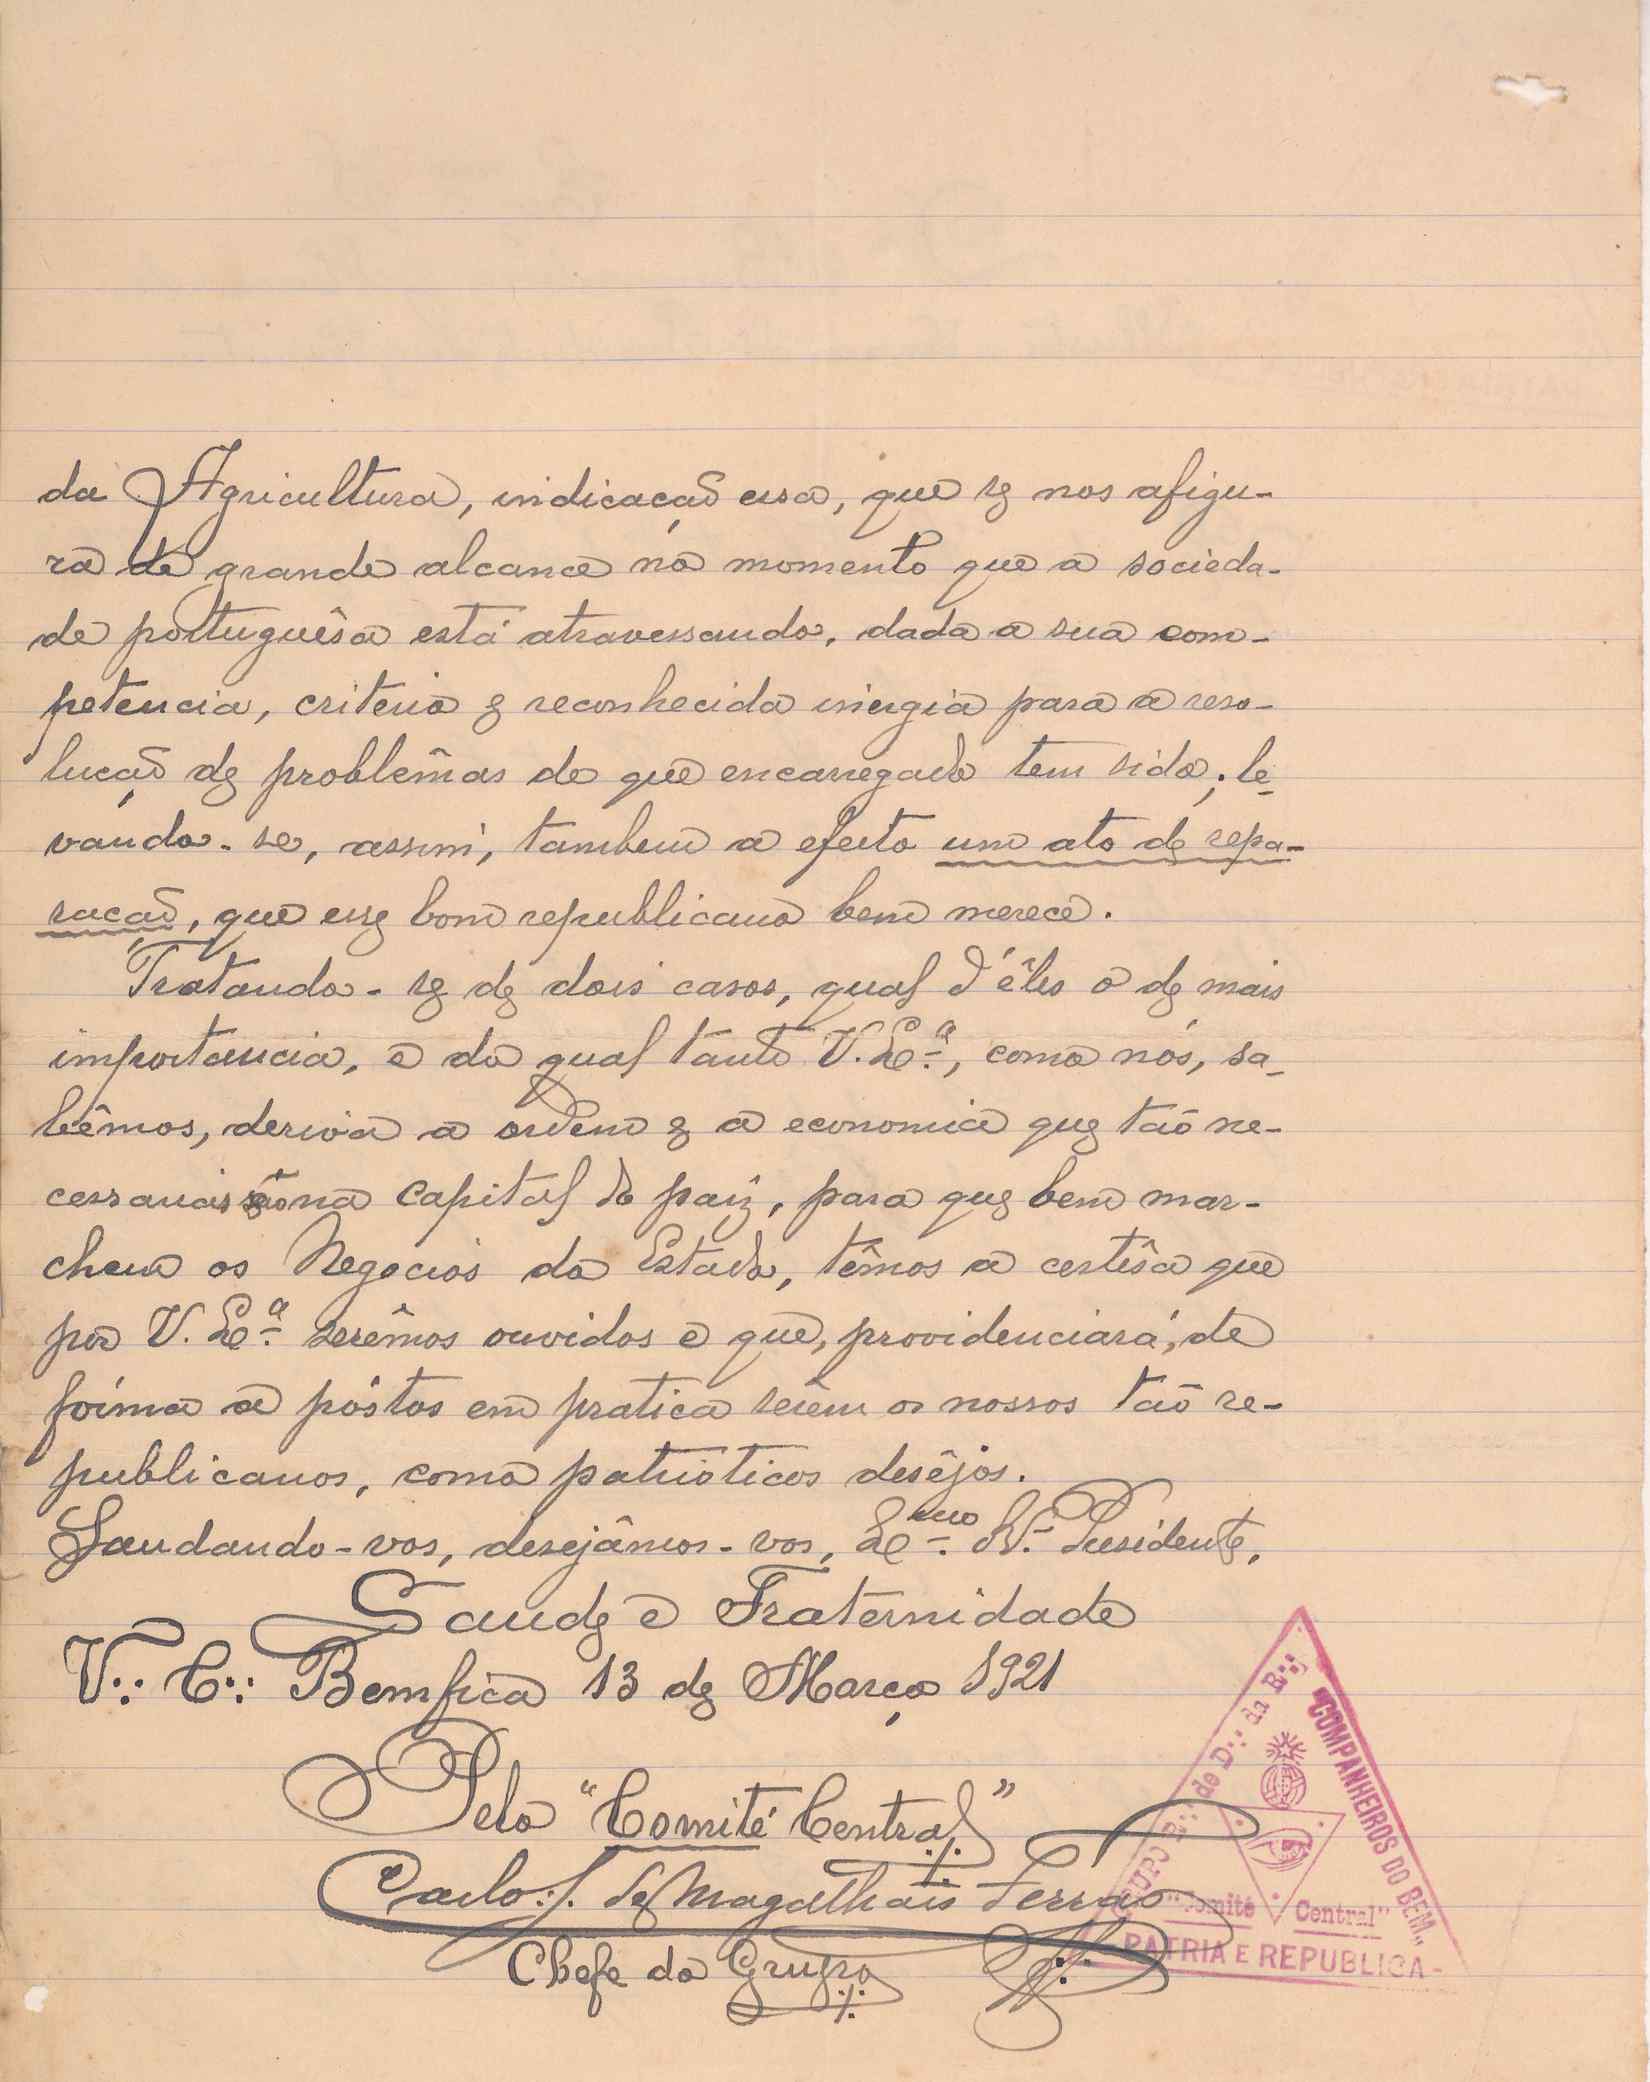 da Agricultura, indicação essa, que se nos afigu-
ra de grande alcance no momento que a socieda-
de português​a está atravessando, dada a sua com-
petencia, criterio e reconhecida inergia para a reso-
lução de problêmas de que encarregado tem sido; le-
vando-se, assim, tambem a efeito um ato de repa-
ração, que esse bom republicano bem merece.
Tratando-se de dois casos, qual d'êles o de mais
importancia, e do qual tanto V. Ex.ª, como nós, sa-
bêmos, deriva a ordem e a economia que tão ne-
cessarias são na capital do paiz, para que bem mar-
chem os Negocios do Estado, têmos a certêsa que
por V. Ex.ª serêmos ouvidos e que, providenciará, de
fórma a póstos em pratica serem os nossos tão re-
publicanos, como patrióticos desêjos.
Saudando-vos, desejâmos-vos, Ex.mo Sr. Presidente,
Saude e Fraternidade
V∴ C∴ Bemfica 13 de Março 1921
Pelo "Comité Central"
Carlos de Magalhais Ferrão
Chefe do Grupo
GRUPO R∴ de D∴ da R∴
"COMPANHEIROS DO BEM"
"Comité Central"
- PATRIA E REPUBLICA -